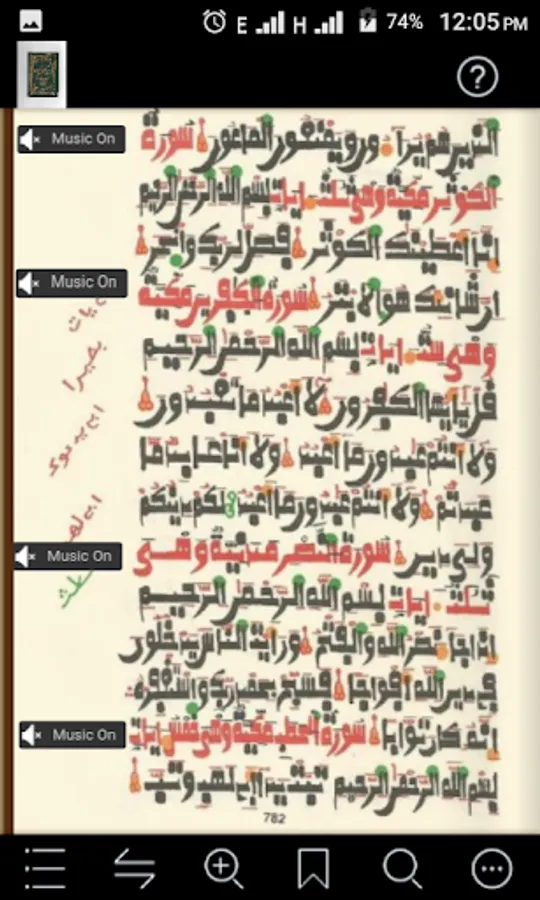 E H 74% 12:05 PM
Music On
الذين هم يراءون ويمنعون الماعون سورة
الكوثر مكية وهي ثلث ايات بسم الله الرحمن الرحيم
انا اعطينك الكوثر فصل لربك وانحر
Music On
ان شانئك هو الابتر سورة الكفرين مكية
وهي ست ايات بسم الله الرحمن الرحيم
قل يايها الكفرون لا اعبد ما تعبدون
ولا انتم عبدون ما اعبد ولا انا عابد ما
عبدتم ولا انتم عبدون ما اعبد لكم دينكم
Music On
ولي دين سورة النصر مدنية وهي
ثلث ايات بسم الله الرحمن الرحيم
اذا جاء نصر الله والفتح ورايت الناس يدخلون
في دين الله افواجا فسبح بحمد ربك واستغفره
Music On
انه كان توابا سورة الحطب مكية وهي خمس ايات
بسم الله الرحمن الرحيم تبت يدا ابي لهب وتب
782